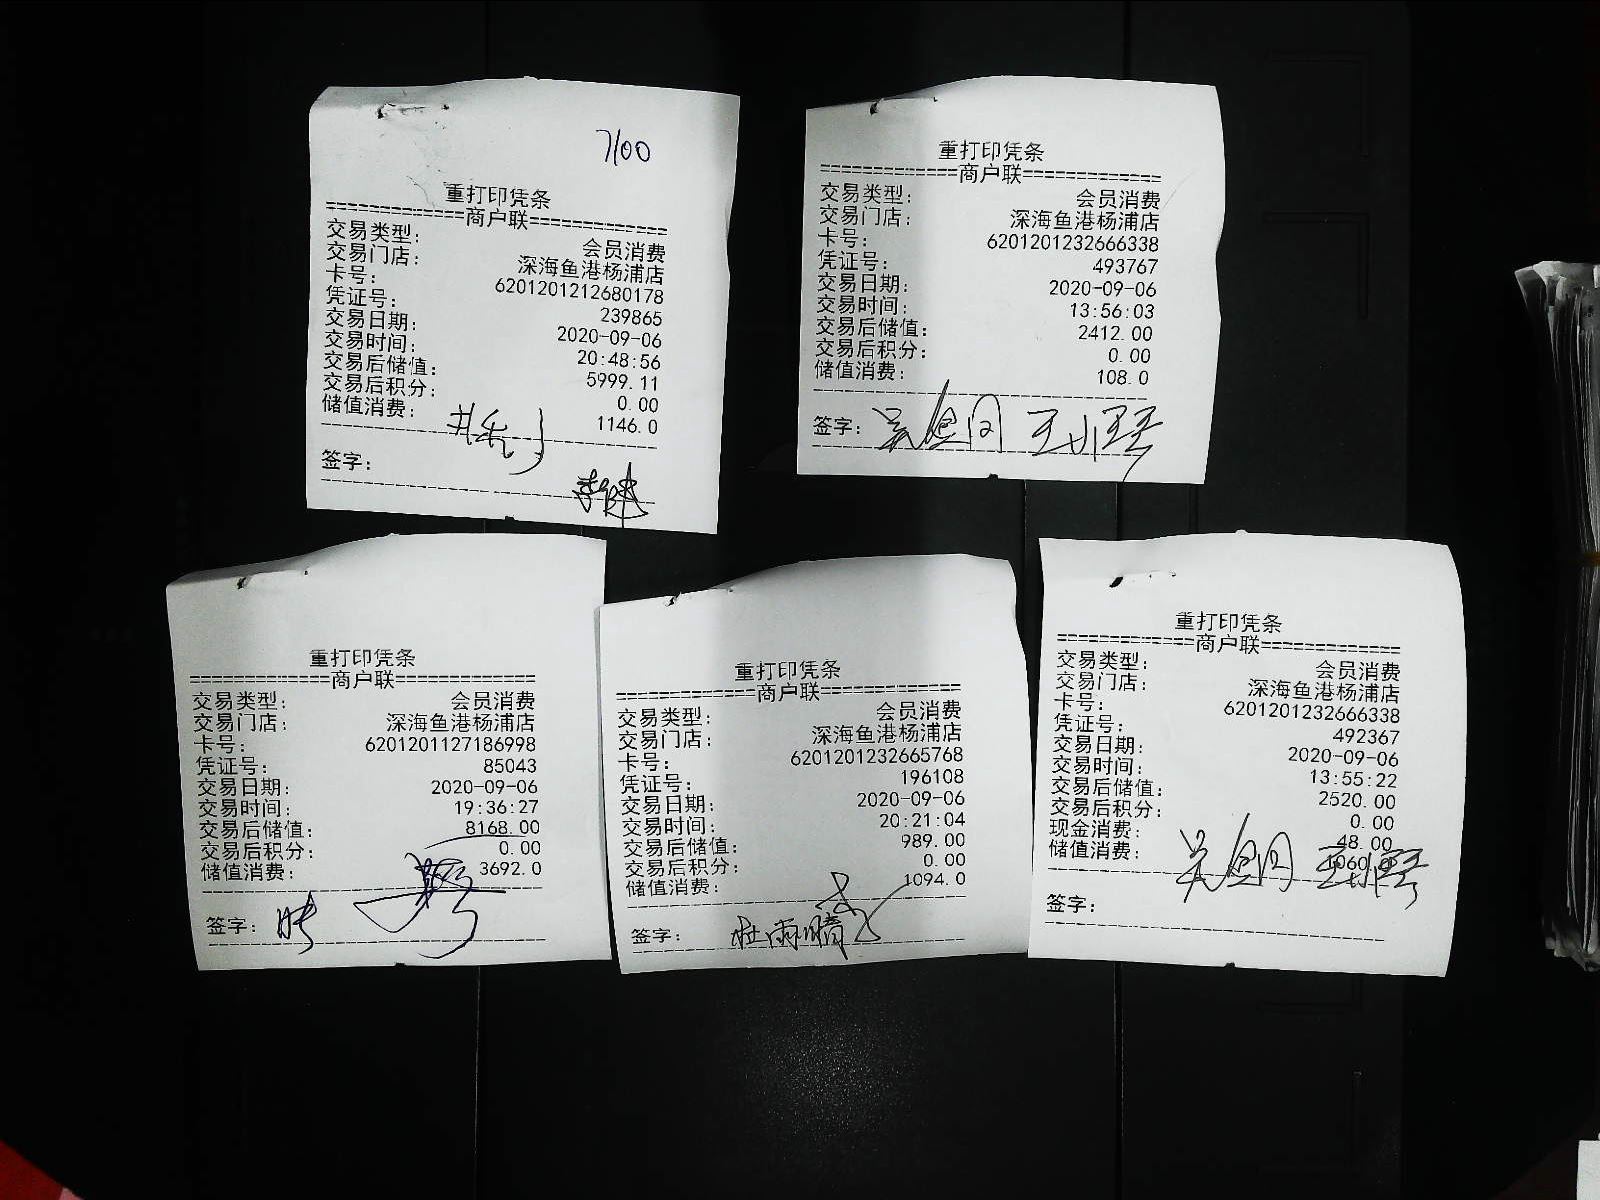 7100
重打印凭条
=============商户联=============
交易类型: 会员消费
交易门店: 深海鱼港杨浦店
卡号: 6201201212680178
凭证号: 239865
交易日期: 2020-09-06
交易时间: 20:48:56
交易后储值: 5999.11
交易后积分: 0.00
储值消费: 1146.0
签字:
重打印凭条
=============商户联=============
交易类型: 会员消费
交易门店: 深海鱼港杨浦店
卡号: 6201201232666338
凭证号: 493767
交易日期: 2020-09-06
交易时间: 13:56:03
交易后储值: 2412.00
交易后积分: 0.00
储值消费: 108.0
签字:
重打印凭条
=============商户联=============
交易类型: 会员消费
交易门店: 深海鱼港杨浦店
卡号: 6201201127186998
凭证号: 85043
交易日期: 2020-09-06
交易时间: 19:36:27
交易后储值: 8168.00
交易后积分: 0.00
储值消费: 3692.0
签字:
重打印凭条
=============商户联=============
交易类型: 会员消费
交易门店: 深海鱼港杨浦店
卡号: 6201201232665768
凭证号: 196108
交易日期: 2020-09-06
交易时间: 20:21:04
交易后储值: 989.00
交易后积分: 0.00
储值消费: 1094.0
签字: 杜雨晴
重打印凭条
=============商户联=============
交易类型: 会员消费
交易门店: 深海鱼港杨浦店
卡号: 6201201232666338
凭证号: 492367
交易日期: 2020-09-06
交易时间: 13:55:22
交易后储值: 2520.00
交易后积分: 0.00
现金消费: 48.00
储值消费: 1060.0
签字: